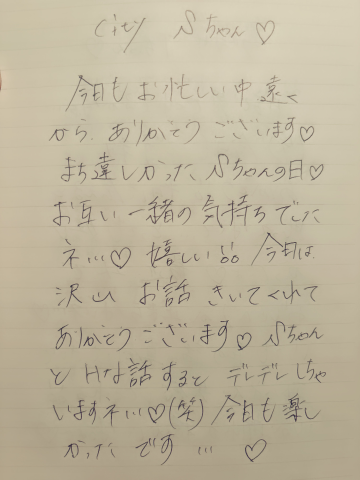 city Sちゃん♡
今日もお忙しい中遠く
から、ありがとうございます♡
まち遠しかったSちゃんの日♡
お互い一緒の気持ちでした
ネ…♡ 嬉しい 今日は
沢山 お話 きいてくれて
ありがとうございます♡Sちゃん
とHな話すると デレデレしちゃ
いますネ…♡(笑)今日も楽し
かった です … ♡